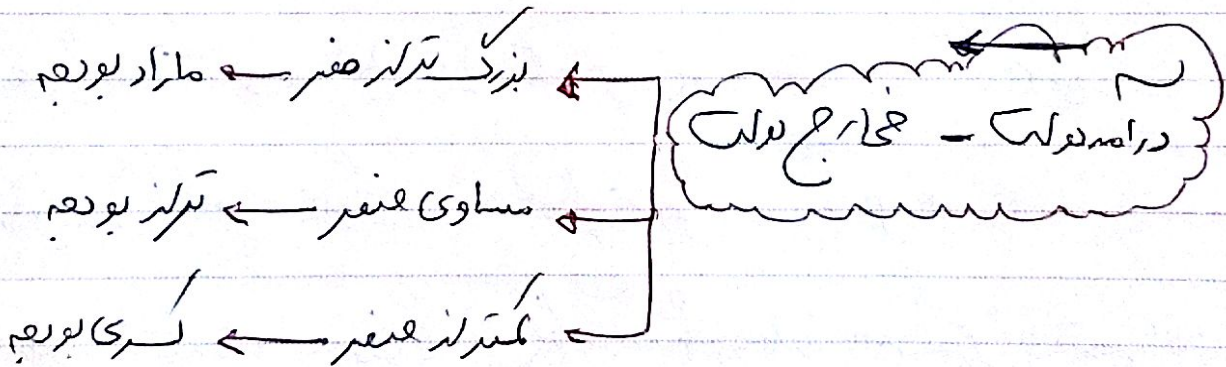 درآمد دولت - مخارج دولت
بزرگ تر از صفر ← مازاد بودجه
مساوی صفر ← تراز بودجه
کمتر از صفر ← کسری بودجه